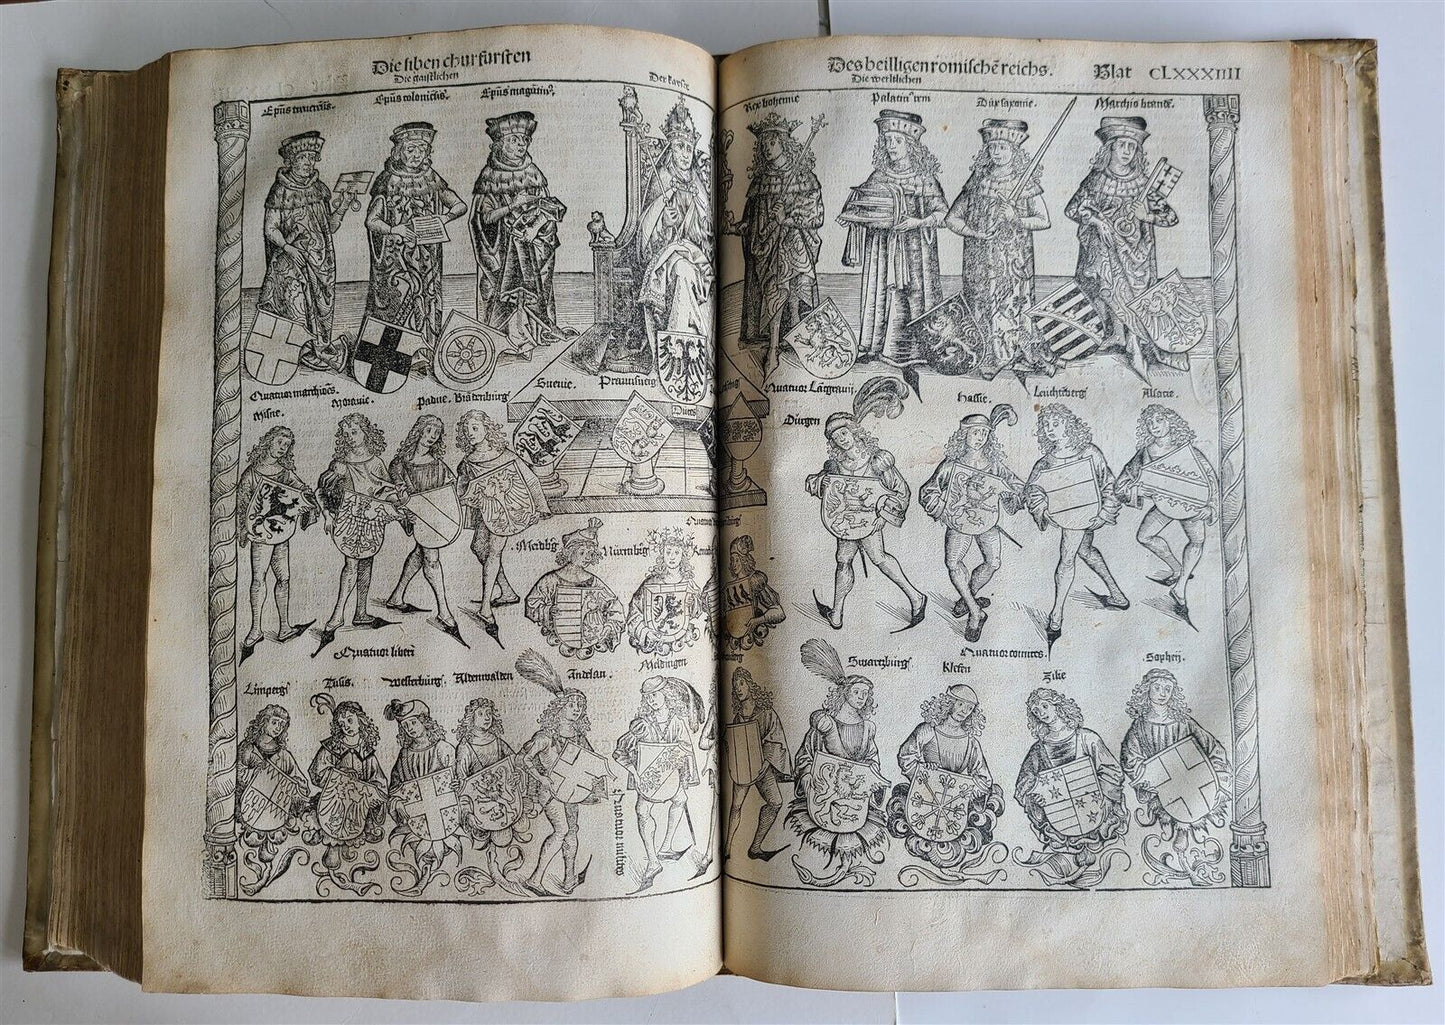 Die siben churfürsten
Die gaistlichen
Der kayser
Des heilligen romischē reichs.
Die werltlichen
Blat CLXXXIIII
Ep̄us colonieñs.
Ep̄us magūtinꝰ.
Rex bohemie
Palatinꝰ
Dux saxonie.
Marchio brandē.
Quatuor marchiōes.
Misne.
Moravie.
Padue.
Brādenburgꝭ
Suevie.
Duces
Quatuor Lātgravij
Dürgen
Hassie.
Leuchtēbergꝭ
Alsacie.
Meidb̄g
Nürmb̄g
Quatuor liberi
Limpergꝭ
Tusis.
Westerburgꝭ
Aldenwalden
Andelan.
Meldingen
Quatuor milites
Quatuor comites.
Swartzburgꝭ
Klefen
Zilie
Sophey.